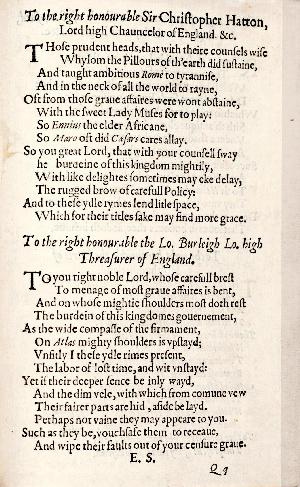 To the right honourable Sir Christopher Hatton,
Lord high Chauncelor of England. &c.
THose prudent heads, that with theire counsels wise
Whylom the Pillours of th'earth did sustaine,
And taught ambitious Rome to tyrannise,
And in the neck of all the world to rayne,
Oft from those graue affaires were wont abstaine,
With the sweet Lady Muses for to play:
So Ennius the elder Africane,
So Maro oft did Cæsars cares allay.
So you great Lord, that with your counsell sway
he burdeine of this kingdom mightily,
With like delightes sometimes may eke delay,
The rugged brow of carefull Policy:
And to these ydle rymes lend litle space,
Which for their titles sake may find more grace.
To the right honourable the Lo. Burleigh Lo. high
Threasurer of England.
TO you right noble Lord, whose carefull brest
To menage of most graue affaires is bent,
And on whose mightie shoulders most doth rest
The burdein of this kingdomes gouernement,
As the wide compasse of the firmament,
On Atlas mighty shoulders is vpstayd;
Vnfitly I these ydle rimes present,
The labor of lost time, and wit vnstayd:
Yet if their deeper sence be inly wayd,
And the dim vele, with which from comune vew
Their fairer parts are hid, aside be layd.
Perhaps not vaine they may appeare to you.
Such as they be, vouchsafe them to receaue,
And wipe their faults out of your censure graue.
E. S.